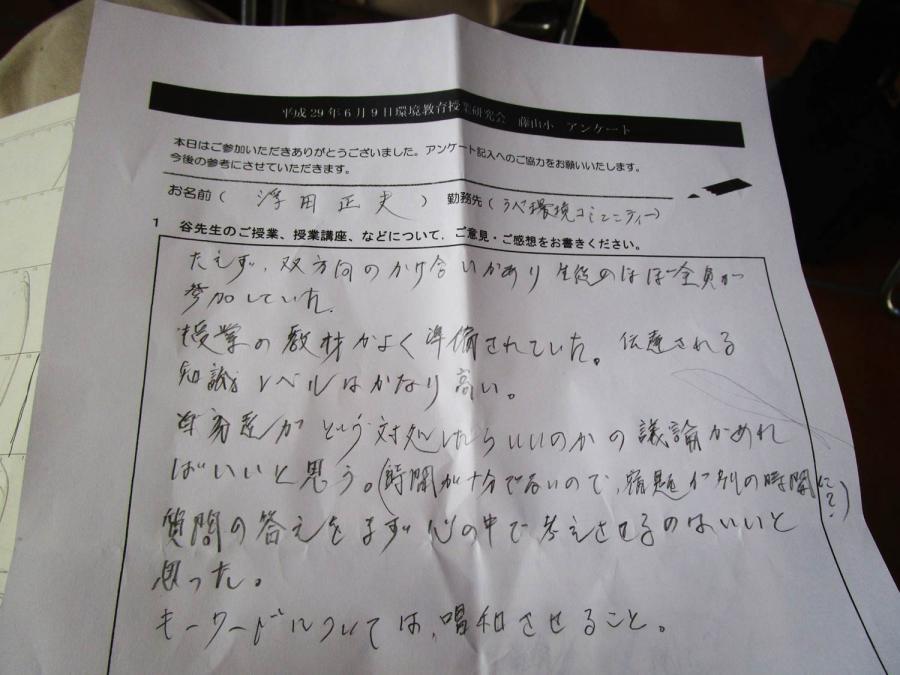 平成29年6月9日環境教育授業研究会 藤山小 アンケート
本日はご参加いただきありがとうございました。アンケート記入へのご協力をお願いいたします。
今後の参考にさせていただきます。
お名前 ( 浮田正夫 ) 勤務先 ( うべ環境コミュニティー)
1 谷先生のご授業、授業講座、などについて、ご意見・ご感想をお書きください。
たえず、双方向のかけ合いがあり 生徒のほぼ全員が
参加していた.
授業の教材がよく準備されていた。伝達される
知識レベルはかなり高い。
どう対処したらいいのかの議論があれ
ばいいと思う。(時間が十分でないので、宿題か別の時間に?)
質問の答えをまず心の中で考えさせるのはいいと
思った。
キーワードについては、唱和させること。